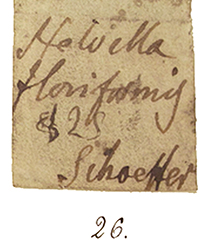 Helvella
floriformis
& 2S
Schoeffer
26.